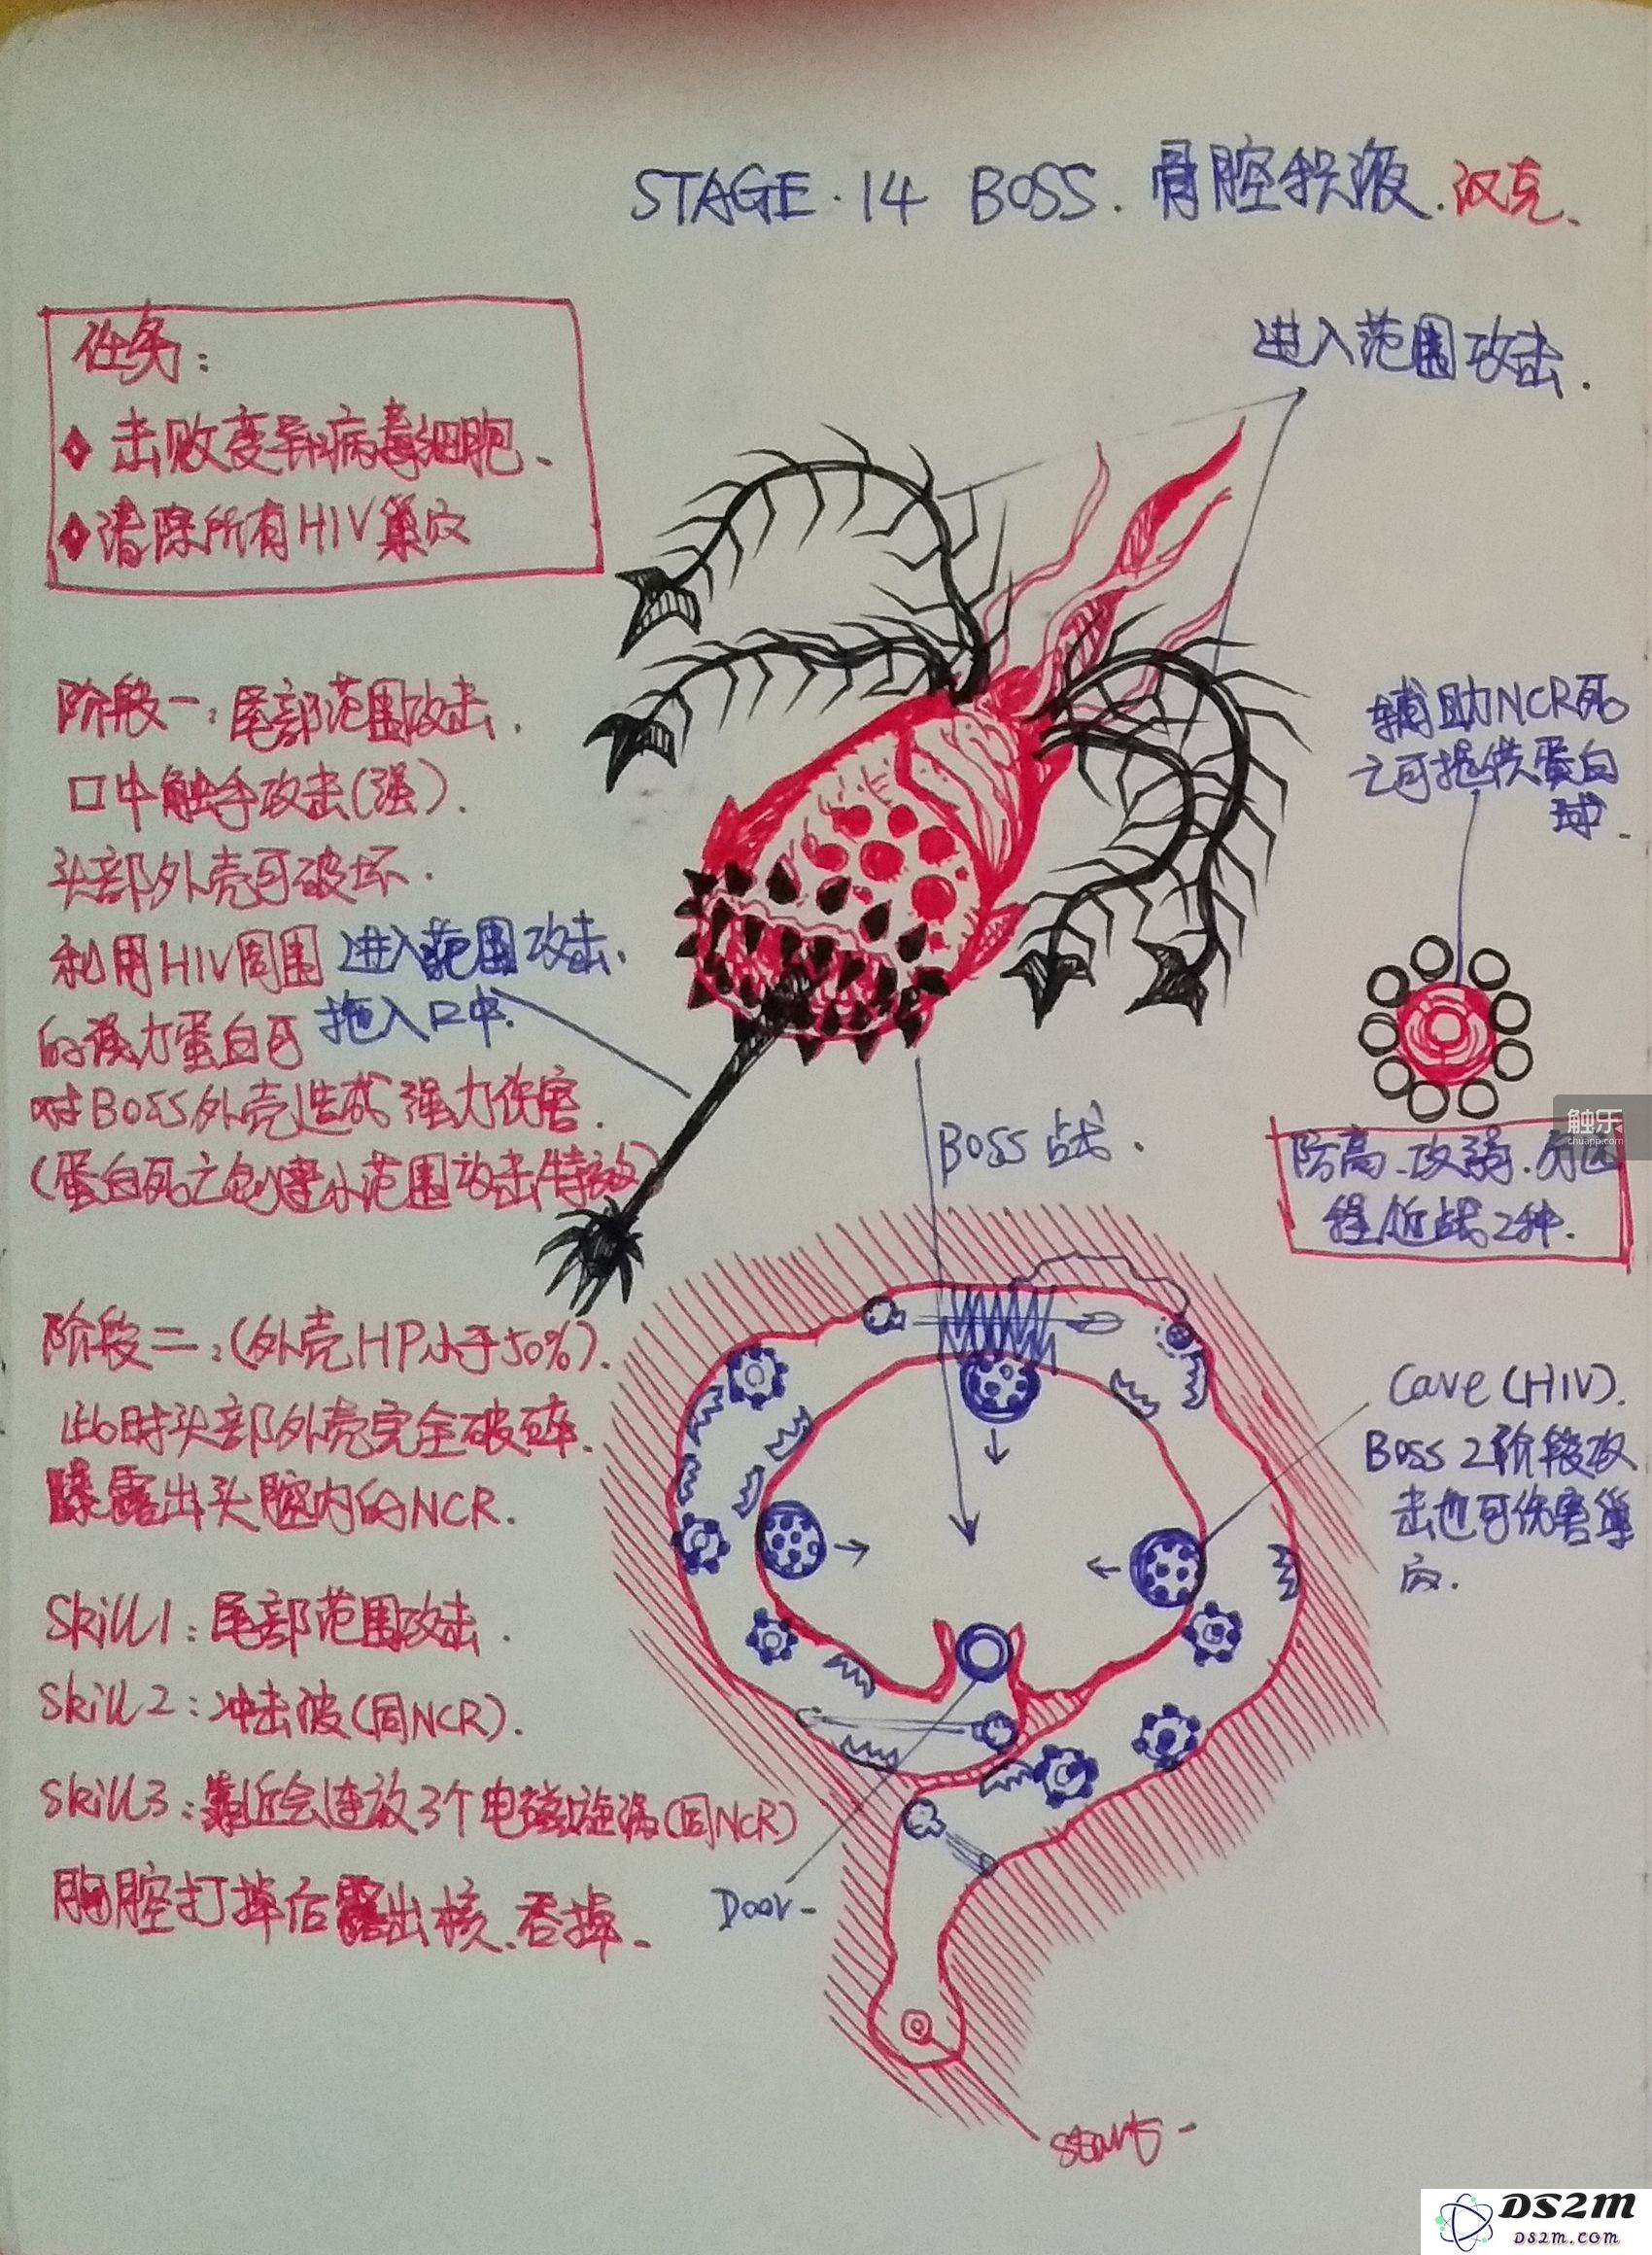 STAGE.14 BOSS.骨腔积液.汉克、
任务：
击败变异病毒细胞、
清除所有HIV巢穴
进入范围攻击.
阶段一：尾部范围攻击.
口中触手攻击(强).
头部外壳可破坏.
利用HIV周围
的强力蛋白可
对BOSS外壳造成强力伤害.
(蛋白死亡创造小范围攻击特效)
进入范围攻击.
拖入口中.
辅助NCR死
亡可提供蛋白
球.
触乐
chuapp.com
防高.攻弱.分远
程/近战2种.
BOSS战.
阶段二：(外壳HP小于50%).
此时头部外壳完全破碎.
曝露出头腔内的NCR.
Skill1：尾部范围攻击.
Skill2：冲击波(同NCR).
Skill3：靠近会连放3个电磁旋涡(同NCR)
胸腔打掉后露出核、吞掉、
Cave(HIV).
Boss 2阶段攻
击也可伤害巢
穴.
Door-
start-
DS2M
DS2M.COM